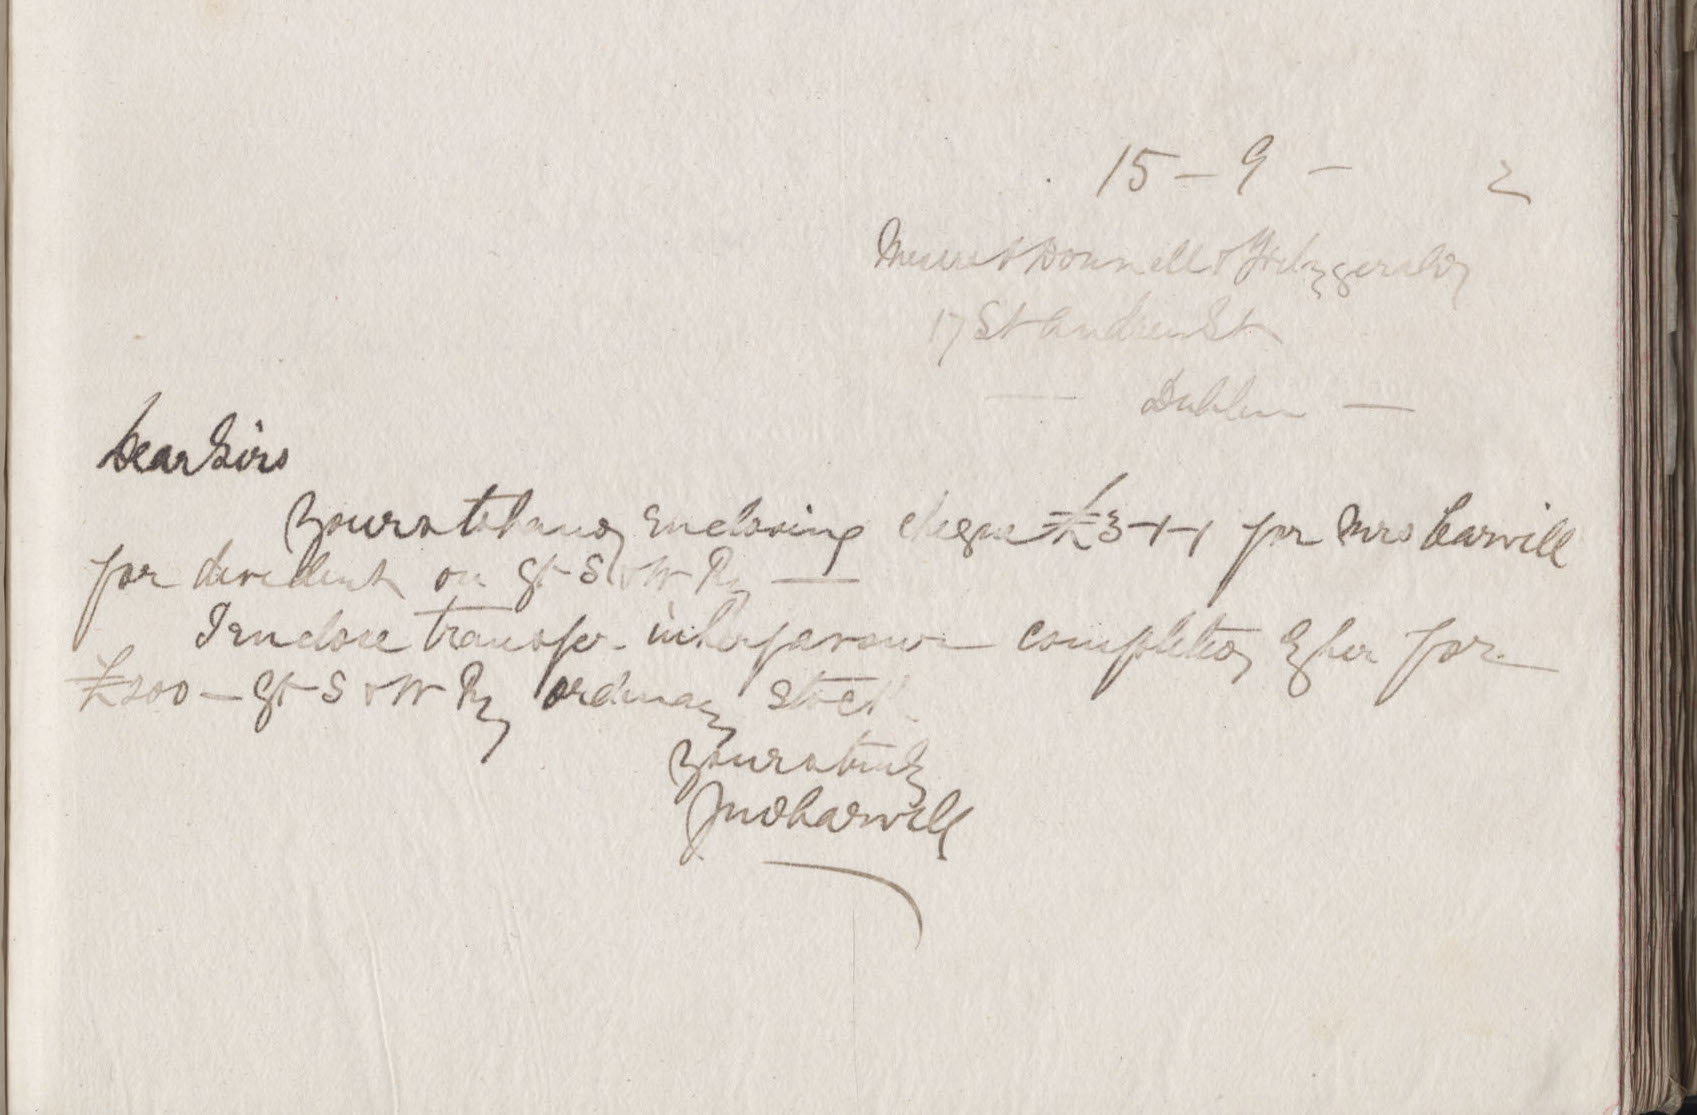 15 - 9 - 2
Messrs Donnell & Fitzgerald
17 St Andrew St
— Dublin —
Dear Sirs
Yours to hand enclosing cheque £3-1-1 for Mrs Carvill
for dividend on Gt S & W Ry —
I enclose transfer in her favour completed by her for
£200 — Gt S & W Ry ordinary stock
Yours truly
Jno Carvill